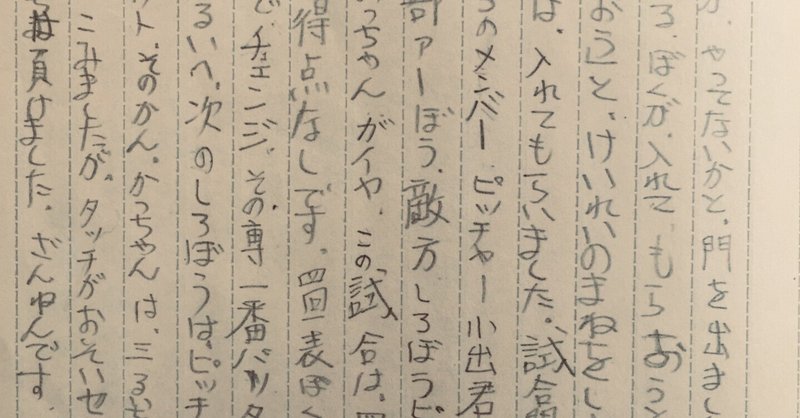 か、やってないかと、門を出まし
る、ぼくが、入れて、もらおうと
おう」と、けいれいのまねをし
は、入れてもらいました。試合開
ちのメンバー ピッチャー小出君
部アーぼう、敵方しろぼうピ
っちゃんがイヤ、この、試合は、四
得点なしです。四回表ぼく
で、チェンジ、その専一番バッタ
るいへ、次のしろぼうは、ピッチ
ット、そのかん。かっちゃんは、三るい
こみましたが、タッチがおそいセ
は負けました。ざんねんです。